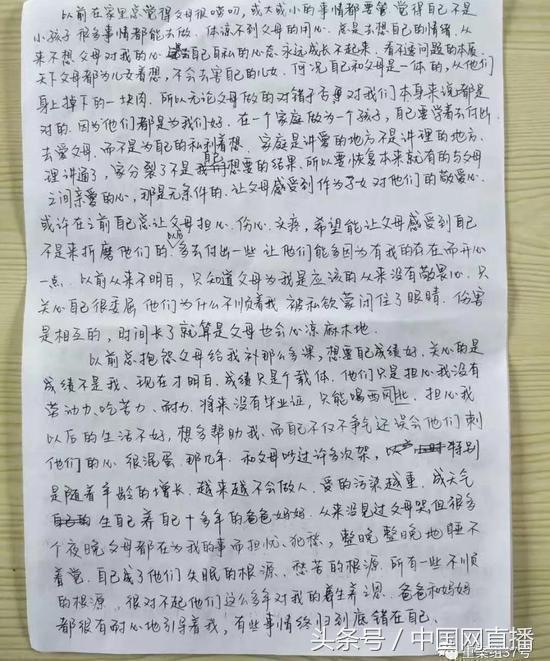 以前在家里总觉得父母很唠叨，或大或小的事情都要管。觉得自己不是
小孩子很多事情都能去做。体凉不到父母的用心。总是去想自己的情绪。从
来不想父母对我的心 自己自私的心态永远成长不起来。看不透问题的本质
天下父母都为儿女着想，不会去害自己的儿女。何况自己和父母是一体的，从他们
身上掉下的一块肉。所以无论父母做的对错于否再对我们本身来说都是
对的。因为他们都是为我们好。在一个家庭做为一个孩子，自己要学着去付出
去爱父母。而不是为自己的私利着想。家庭是讲爱的地方不是讲理的地方。
理讲通了，家分裂了不是自己想要的结果。所以要恢复本来就有的与父母
之间亲爱的心，那是无条件的。让父母感受到作为子女对他们的敬爱心。
或许在之前自己总让父母担心。伤心。头疼，希望能让父母感受到自己
不是来折磨他们的。多去付出一些 让他们能多因为有我的存在而开心
一点。以前从来不明白，只知道父母为我是应该的从来没有敬畏心。只
关心自己很委屈他们为什么不顺着我 被私欲蒙闭住了眼睛。伤害
是相互的，时间长了就算是父母也会心凉麻木地。
以前总抱怨父母给我补那么多课，想要自己成绩好。关心的是
成绩不是我。现在才明白。成绩只是个载体。他们只是担心我没有
劳动力、吃苦力、耐力。将来没有毕业证，只能喝西北风。担心我
以后的生活不好，想多帮助我。而自己不仅不争气还误会他们刺
他们的心。很混蛋。那几年。和父母吵过许多次架，特别
是随着年龄的增长。越来越不会做人。爱的污染越重。成天气
生自己养自己十多年的爸爸妈妈。从来没见过父母哭。但很多
个夜晚父母都在为我的事而担忧、犯愁，整晚整晚地睡不
着觉。自己成了他们失眠的根源、愁苦的根源。所有一些不顺
的根源。很对不起他们这么多年对我的养生养之恩。爸爸和妈妈
都很有耐心地引导着我，有些事情终归到底错在自己。
搜狐号@中国网直播
重案组37号